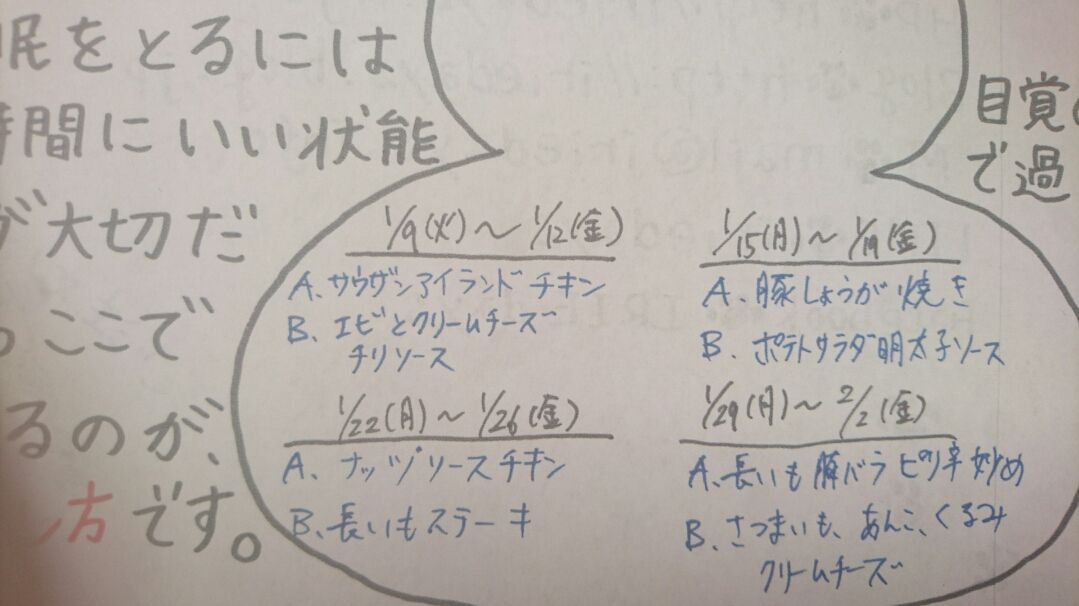 眠をとるには
時間にいい状能
が大切だ
ここで
るのが、
し方です。
目覚
で過
1/9(火)～1/12(金)
A. サウザンアイランドチキン
B. エビとクリームチーズ
チリソース
1/15(月)～1/19(金)
A. 豚しょうが焼き
B. ポテトサラダ明太子ソース
1/22(月)～1/26(金)
A. ナッツソースチキン
B. 長いもステーキ
1/29(月)～2/2(金)
A. 長いも豚バラピリ辛炒め
B. さつまいも、あんこ、くるみ
クリームチーズ